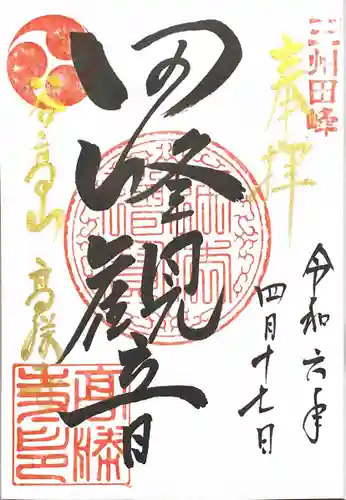 三州田峰
奉拝
令和六年
四月十七日
田の峰観音
谷高山 高勝寺
高勝寺印